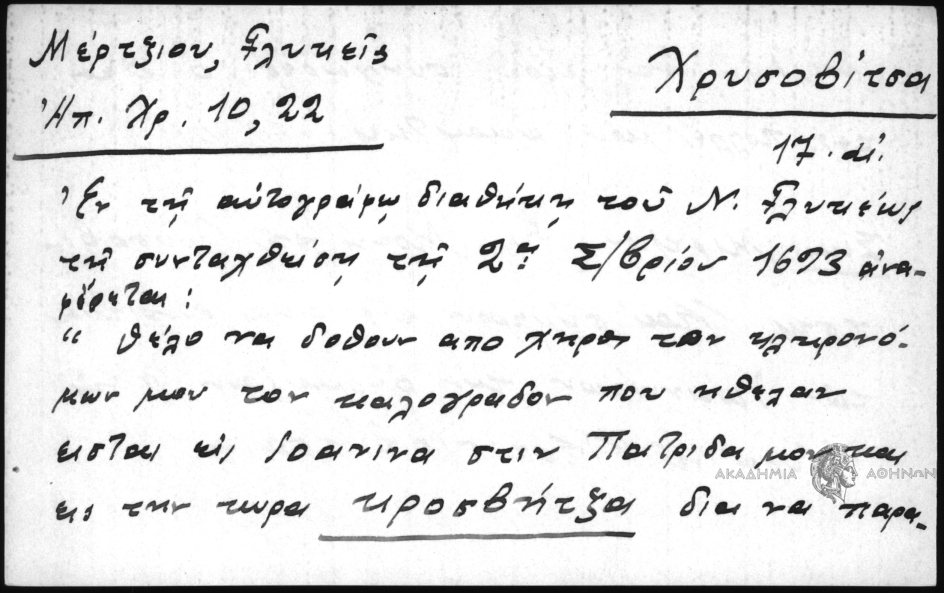 Μέρτζιου, Γλυκεῖς
Ἠπ. Χρ. 10, 22
Χρυσοβίτσα
17. αἰ.
Ἐν τῇ αὐτογράφῳ διαθήκῃ τοῦ Ν. Γλυκέως
τῇ συνταχθείσῃ τῇ 2ᾳ Σ/βρίου 1693 ἀνα-
φέρεται:
“ θέλο να δοθουν απο χηρον τον κληρονό-
μων μου τον καλογραδον που ηθελαν
εισται εις Ιοανινα στιν Πατριδα μου και
εις την χωρα κροσβήτζα δια να παρα-
ΑΚΑΔΗΜΙΑ ΑΘΗΝΩΝ